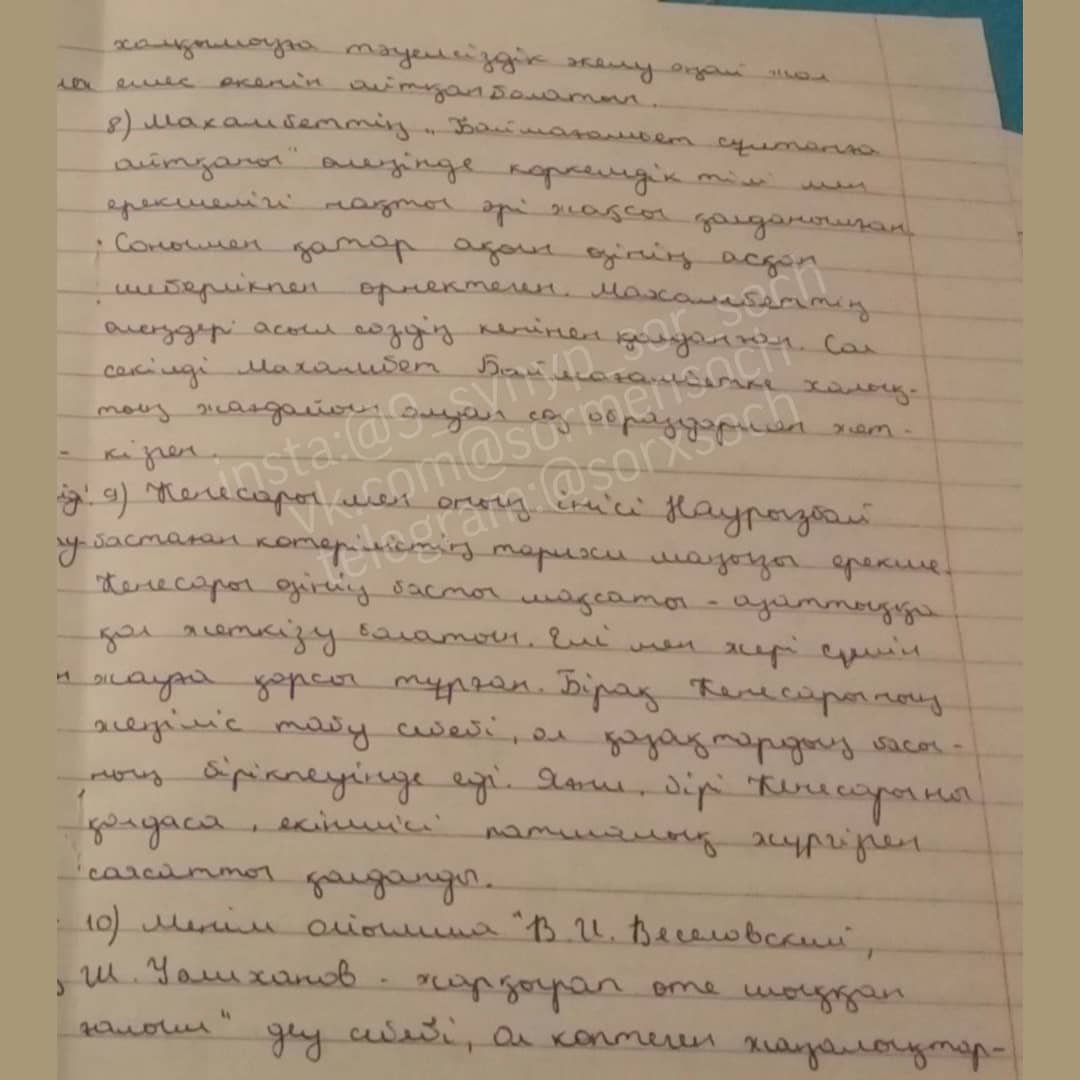 халқымызға тәуелсіздік жеңу оңай жол
емес екенін айтқан болатын.
8) Махамбеттің „Баймағамбет сұлтанға
айтқаны" өлеңінде көркемдік тілі мен
ерекшелігі нақты әрі жақсы қолданылған.
Сонымен қатар ақын өзінің асқан
шеберлікпен өрнектеген. Махамбеттің
өлеңдері асыл сөздің кенінен қолданған. Сол
секілді Махамбет Баймағамбетке халық-
тың жағдайын сөз образдармен жет-
- кізген.
9) Кенесары мен оның інісі Наурызбай
бастаған көтерілістің тарихи маңызы ерекше.
Кенесары өзінің басты мақсаты - азаттыққа
қол жеткізу болатын. Елі мен жері үшін
жауға қарсы тұрған. Бірақ Кенесарының
жеңіліс табу себебі, ол қазақтардың басы-
ның бірікпеуінде еді. Яғни, бірі Кенесарыны
қолдаса, екіншісі патшалық жүргізген
саясатты қолданды.
10) Менім ойымша "В. И. Веселовский,
Ш. Уәлиханов - жарқырап өте шыққан
ғалым" деу себебі, Ол көптеген жаңалықтар-
insta:@9_synyp_sor_soch
vk.com@sormensoch
telegram:@sorxsoch